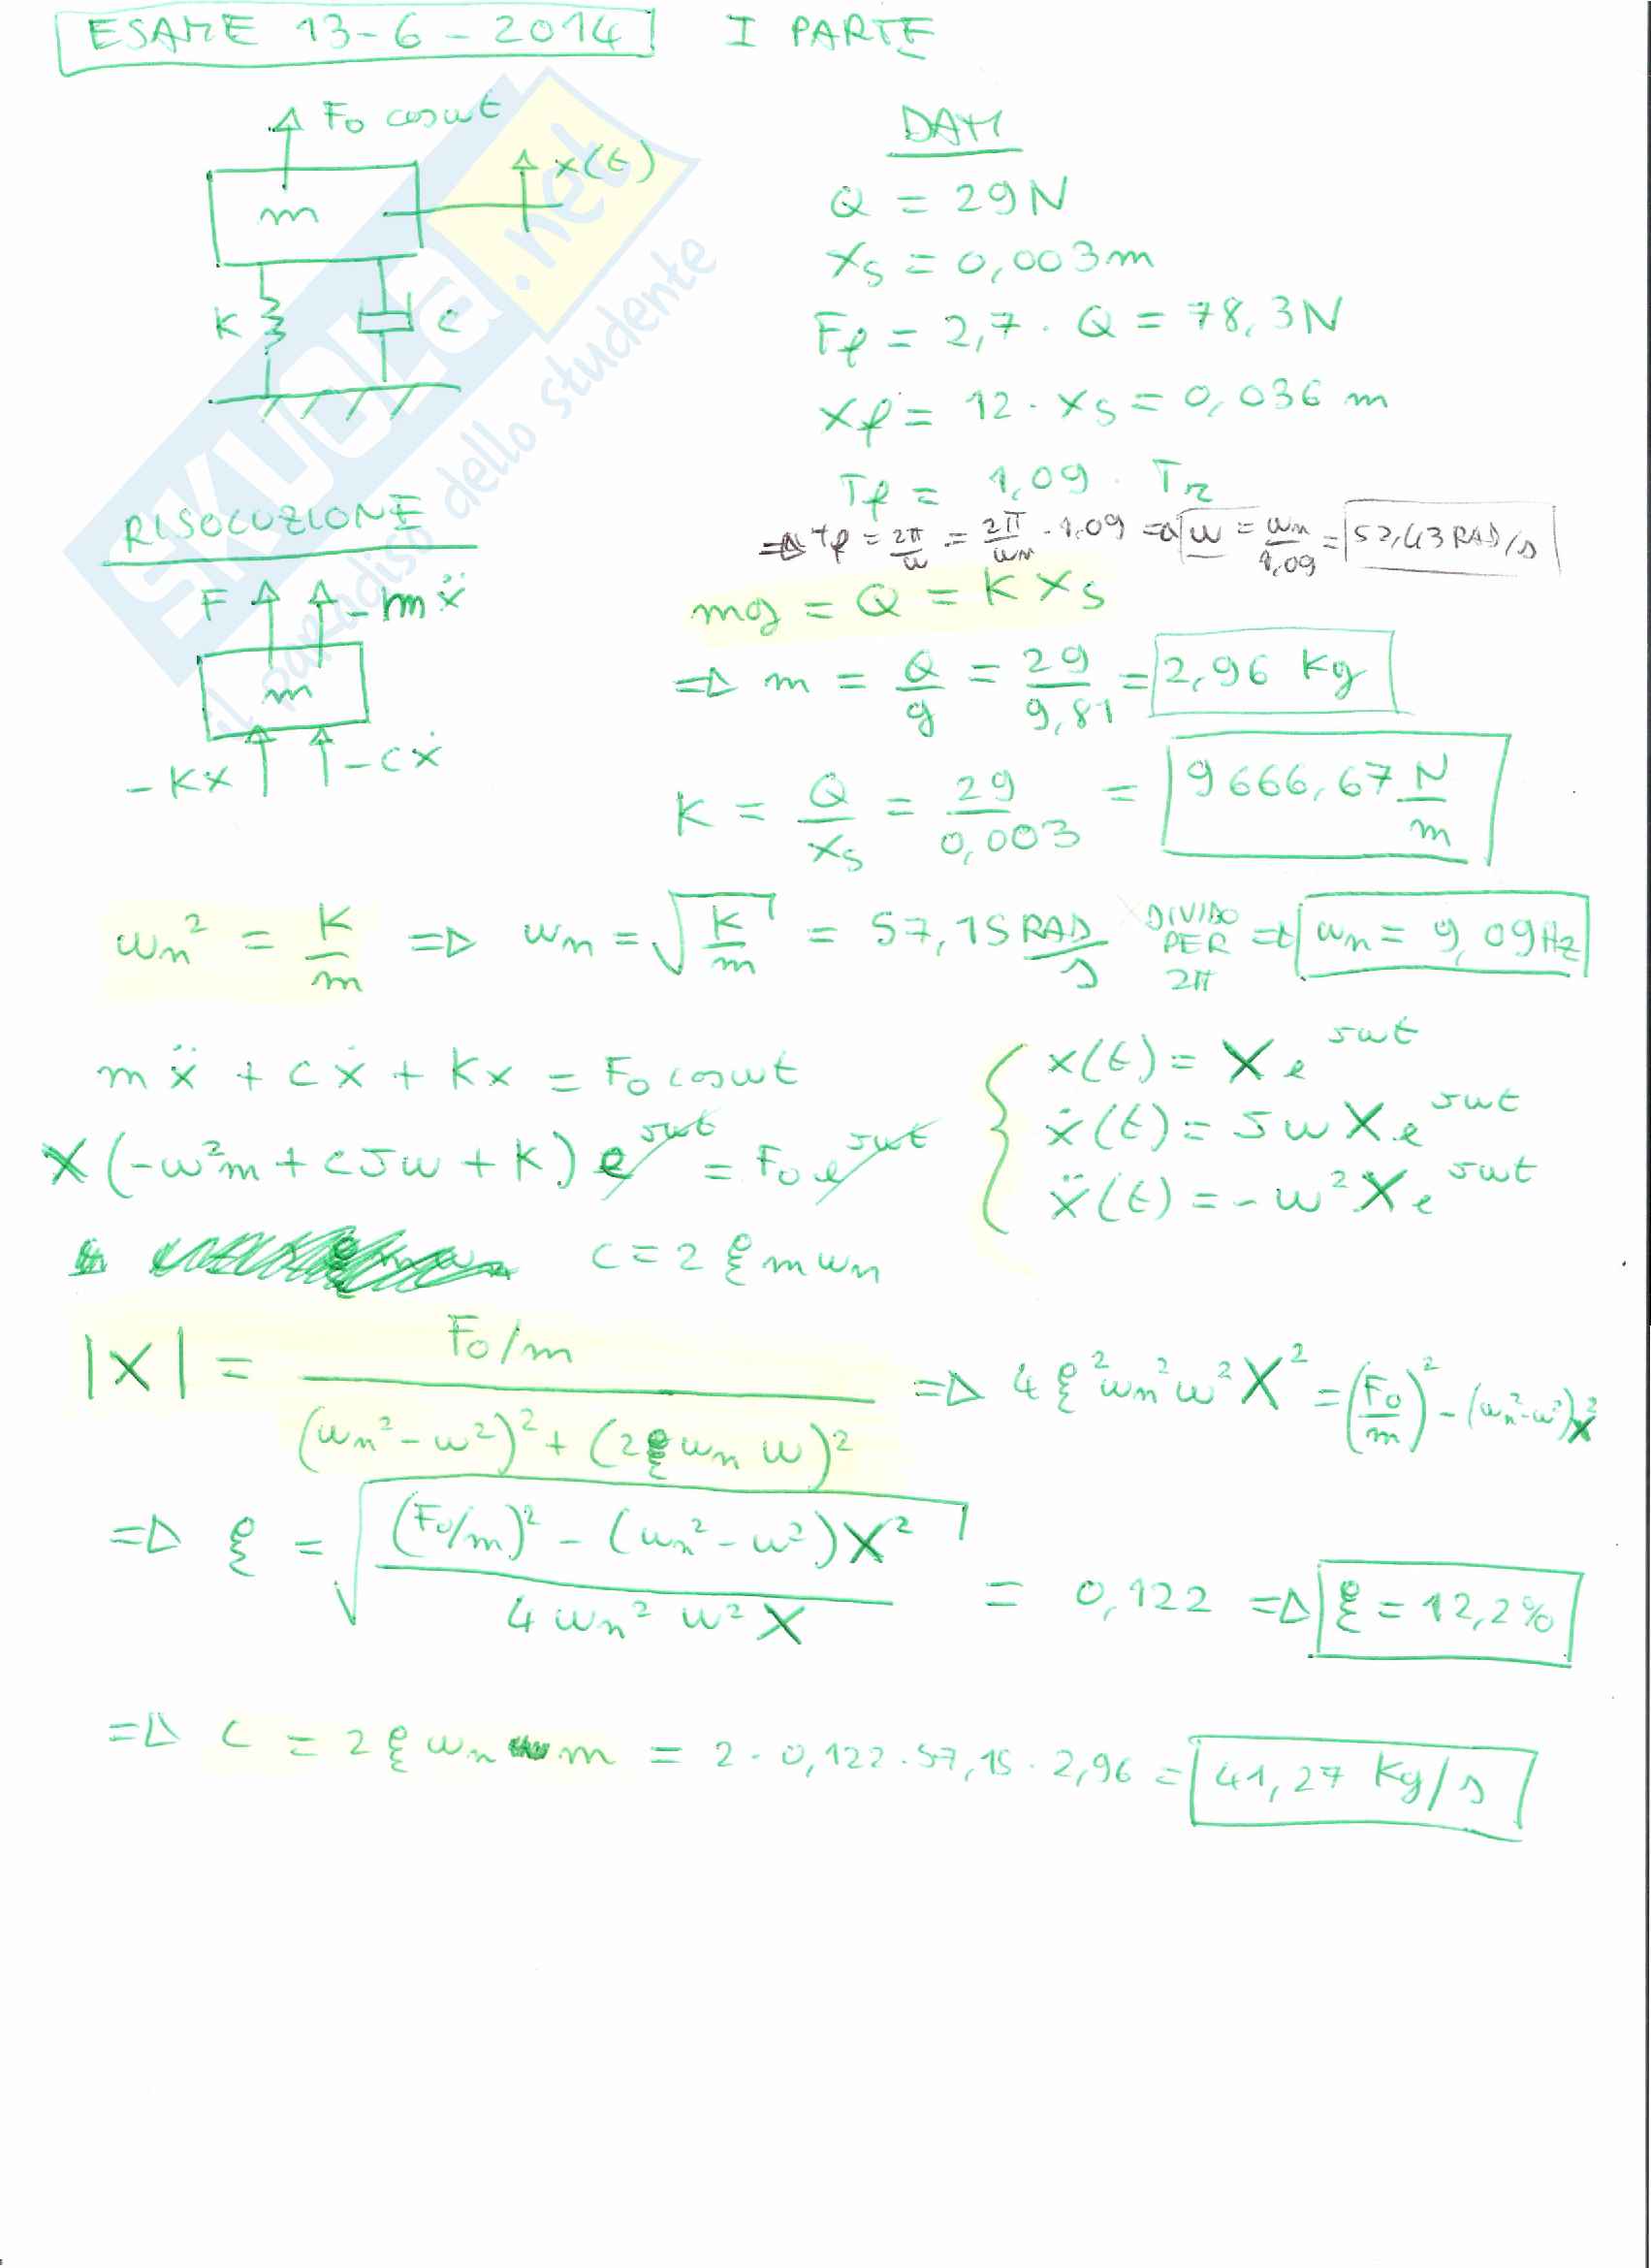 ESAME 13-6-2014 I PARTE
F₀ cosωt
x(t)
m
K
c
DATI
Q = 29N
xs = 0,003m
Ff = 2,7 · Q = 78,3N
xf = 12 · xs = 0,036 m
Tf = 1,09 · Tn
=> Tf = 2π/ω = 2π/ωn · 1,09 => ω = ωn/1,09 = 52,43 RAD/s
RISOLUZIONE
F
-mẍ
m
-Kx
-cẋ
mg = Q = K xs
=> m = Q/g = 29/9,81 = 2,96 Kg
K = Q/xs = 29/0,003 = 9666,67 N/m
ωn² = K/m => ωn = √(K/m) = 57,15 RAD/s DIVIDO PER 2π => ωn = 9,09Hz
mẍ + cẋ + Kx = F₀ cosωt
X(-ω²m + cJω + K) e^Jωt = F₀ e^Jωt
x(t) = X e^Jωt
ẋ(t) = Jω X e^Jωt
ẍ(t) = -ω² X e^Jωt
c = 2 ξ m ωn
|X| = F₀/m / (ωn² - ω²)² + (2ξ ωn ω)² => 4 ξ² ωn² ω² X² = (F₀/m)² - (ωn² - ω²)X²
=> ξ = √((F₀/m)² - (ωn² - ω²)X² / 4 ωn² ω² X) = 0,122 => ξ = 12,2%
=> c = 2 ξ ωn m = 2 · 0,122 · 57,15 · 2,96 = 41,27 Kg/s
SKUOLA.net
il paradiso dello studente